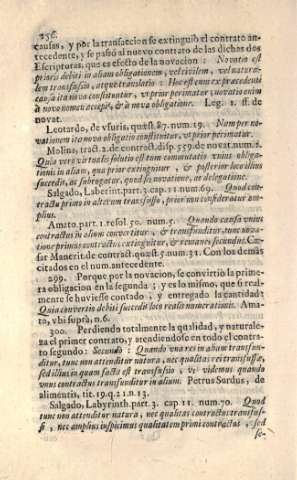 236.
causas, y por la transaccion se extinguiò el contrato an-
tecedente, y se passò al nuevo contrato de las dichas dos
Escripturas, que es efecto de la novacion: Novatio est
prioris debiti in aliam obligationem, vel civilem, vel natura-
lem transfusio, atque translatio: Hoc est cum ex præcedenti
causa ita nova constituatur, ut prior perimatur, novatio enim
à novo nomen accepit, & à nova obligatione. Leg. 1. ff. de
novat.
Leotardo, de vsuris, quæst. 87. num. 19. Nam per no-
vationem ita nova obligatio constituitur, ut prior perimatur.
Molina, tract. 2. de contract. disp. 559. de novat. num. 1.
Quia vera virtualis solutio est tum commutatio unius obliga-
tionis in aliam, qua prior extinguitur, & posterior loco illius
succedit, ac subrogatur, quod fit novatione, ut delegatione.
Salgado, Laberint. part. 3. cap. 11. num. 69. Quod con-
tractu primo in alterum transfuso, prior non consideratur am-
plius.
Amato, part. 1. resol. 30. num. 5. Quando causa unius
contractus in alium convertitur, & transfunditur, tunc nova-
tione primus contractus extinguitur, & remanet secundus. Cæ-
sar Manent. de contract. quæst. 7. num. 31. Con los demàs
citados en el num. antecedente.
299. Porque por la novacion, se convirtiò la prime-
ra obligacion en la segunda; y es lo mismo, que si real-
mente se huviesse contado, y entregado la cantidad
Quia conversio debiti succedit loco realis numerationis. Ama-
to, vbi suprà, n. 6.
300. Perdiendo totalmente la qualidad, y naturale-
za el primer contrato, y atendiendose en todo el contra-
to segundo: Secundò: Quando una res in aliam transfun-
ditur, tunc non attenditur natura, nec qualitas rei transfusæ,
sed illius in quam facta est transfusio, ut videmus quando
unus contractus transfunditur in alium. Petrus Surdus, de
alimentis, tit. 19. q. 21. n. 13.
Salgado, Labyrinth. part. 3. cap. 11. num. 70. Quod
tunc non attenditur natura, nec qualitas contractus transfus-
si, nec amplius inspicimus qualitatem primi contractus, sed
se-